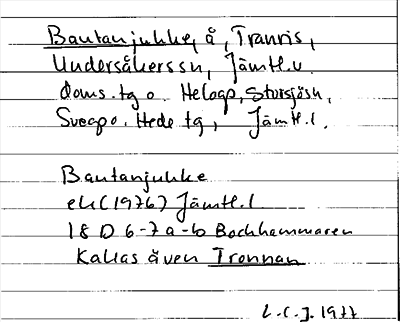 Bautanjuhke, å, Tranris,
Undersåkerssn, Jämtl.v.
doms.tg o. Helagp, Storsjösn,
Sveapo. Hede tg, Jämtl.l.
Bautanjuhke
ek (1976) Jämtl.l
18 D 6-7 a-b Bockhammaren
Kallas även Tronnan
L.C.J. 1977